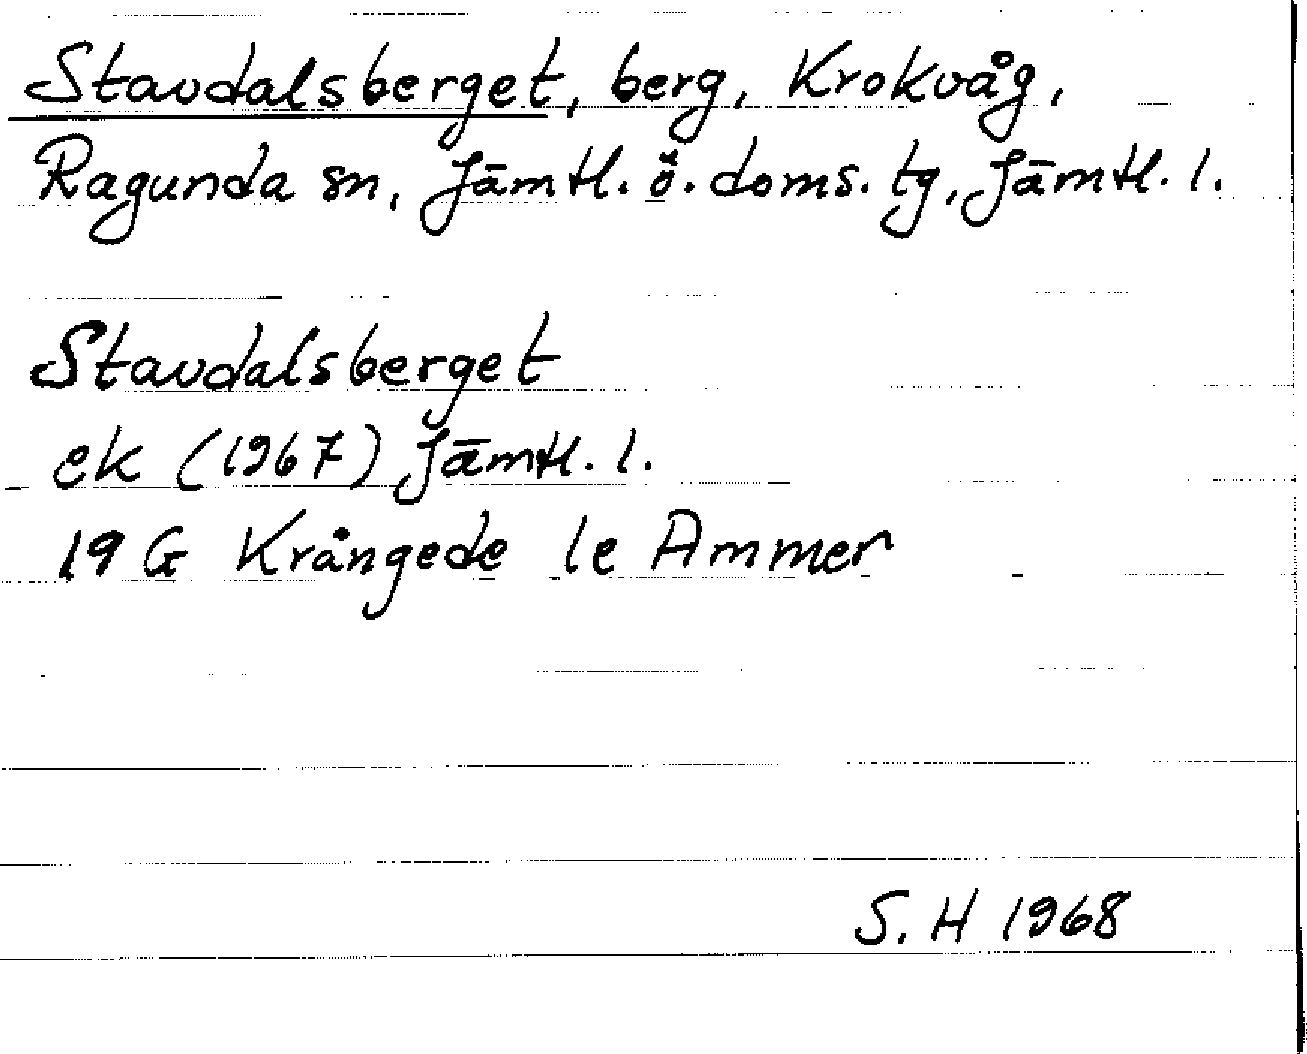 Stavdalsberget, berg, Krokvåg,
Ragunda sn, Jämtl. ö. doms. tg, Jämtl. l.
Stavdalsberget
ek (1967) Jämtl. l.
19 G Krångede le Ammer
S. H 1968